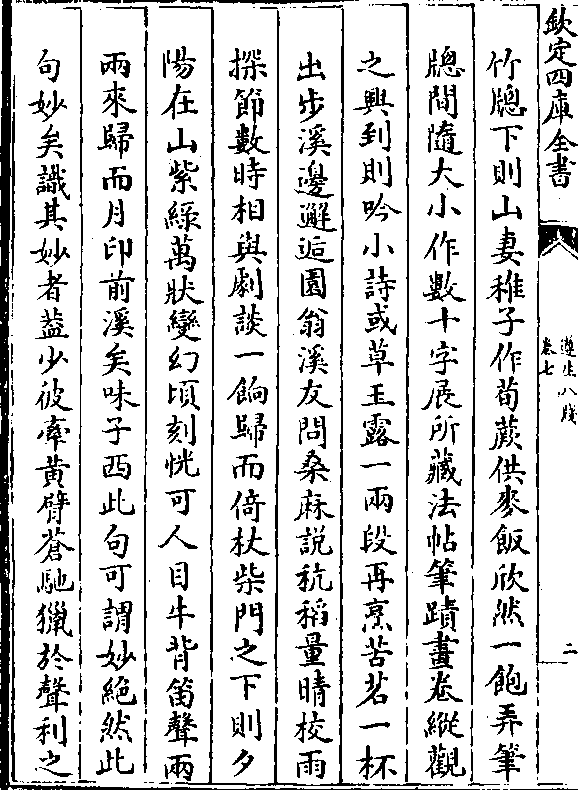 欽定四庫全書
遵生八牋
卷七
二
竹牕下則山妻稚子作荀蕨供麥飯欣然一飽弄筆
牕間隨大小作數十字展所藏法帖筆蹟畫卷縱觀
之興到則吟小詩或草玉露一兩段再烹苦茗一杯
出步溪邊邂逅園翁溪友問桑麻說秔稻量晴校雨
探節數時相與劇談一餉歸而倚杖柴門之下則夕
陽在山紫綠萬狀變幻頃刻恍可人目牛背笛聲兩
兩來歸而月印前溪矣味子西此句可謂妙絕然此
句妙矣識其妙者葢少彼牽黃臂蒼馳獵於聲利之